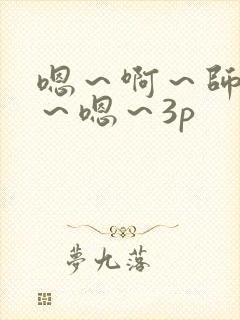 嗯〜啊〜師
〜嗯〜3p
夢九落